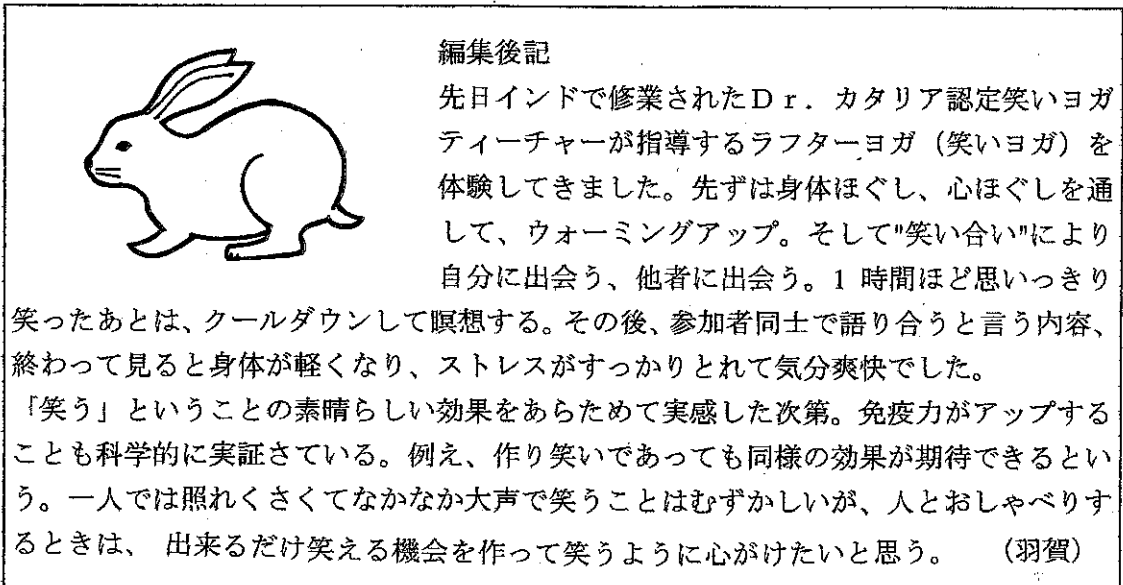 編集後記
先日インドで修業されたDr．カタリア認定笑いヨガ
ティーチャーが指導するラフターヨガ（笑いヨガ）を
体験してきました。先ずは身体ほぐし、心ほぐしを通
して、ウォーミングアップ。そして"笑い合い"により
自分に出会う、他者に出会う。1 時間ほど思いっきり
笑ったあとは、クールダウンして瞑想する。その後、参加者同士で語り合うと言う内容、
終わって見ると身体が軽くなり、ストレスがすっかりとれて気分爽快でした。
「笑う」ということの素晴らしい効果をあらためて実感した次第。免疫力がアップする
ことも科学的に実証さている。例え、作り笑いであっても同様の効果が期待できるとい
う。一人では照れくさくてなかなか大声で笑うことはむずかしいが、人とおしゃべりす
るときは、 出来るだけ笑える機会を作って笑うように心がけたいと思う。 （羽賀）